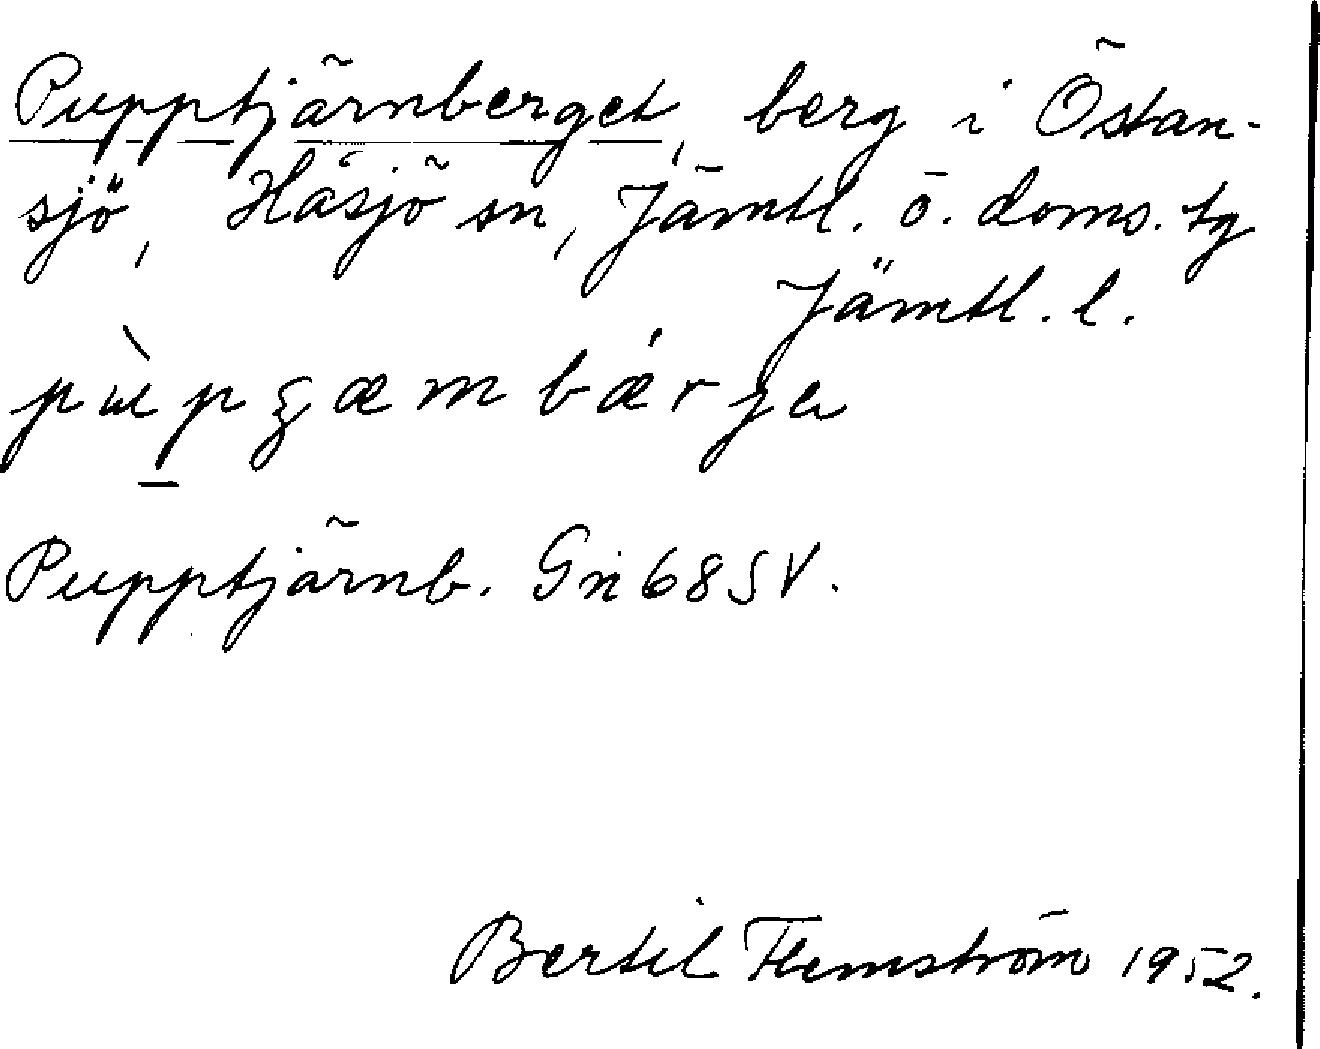 Pupptjärnberget, berg i Östan-
sjö, Håsjö sn, Jämtl. ö. doms. tg
Jämtl. l.
Pupptjärnb. Gn 68 SV.
Bertil Flemström 1952.